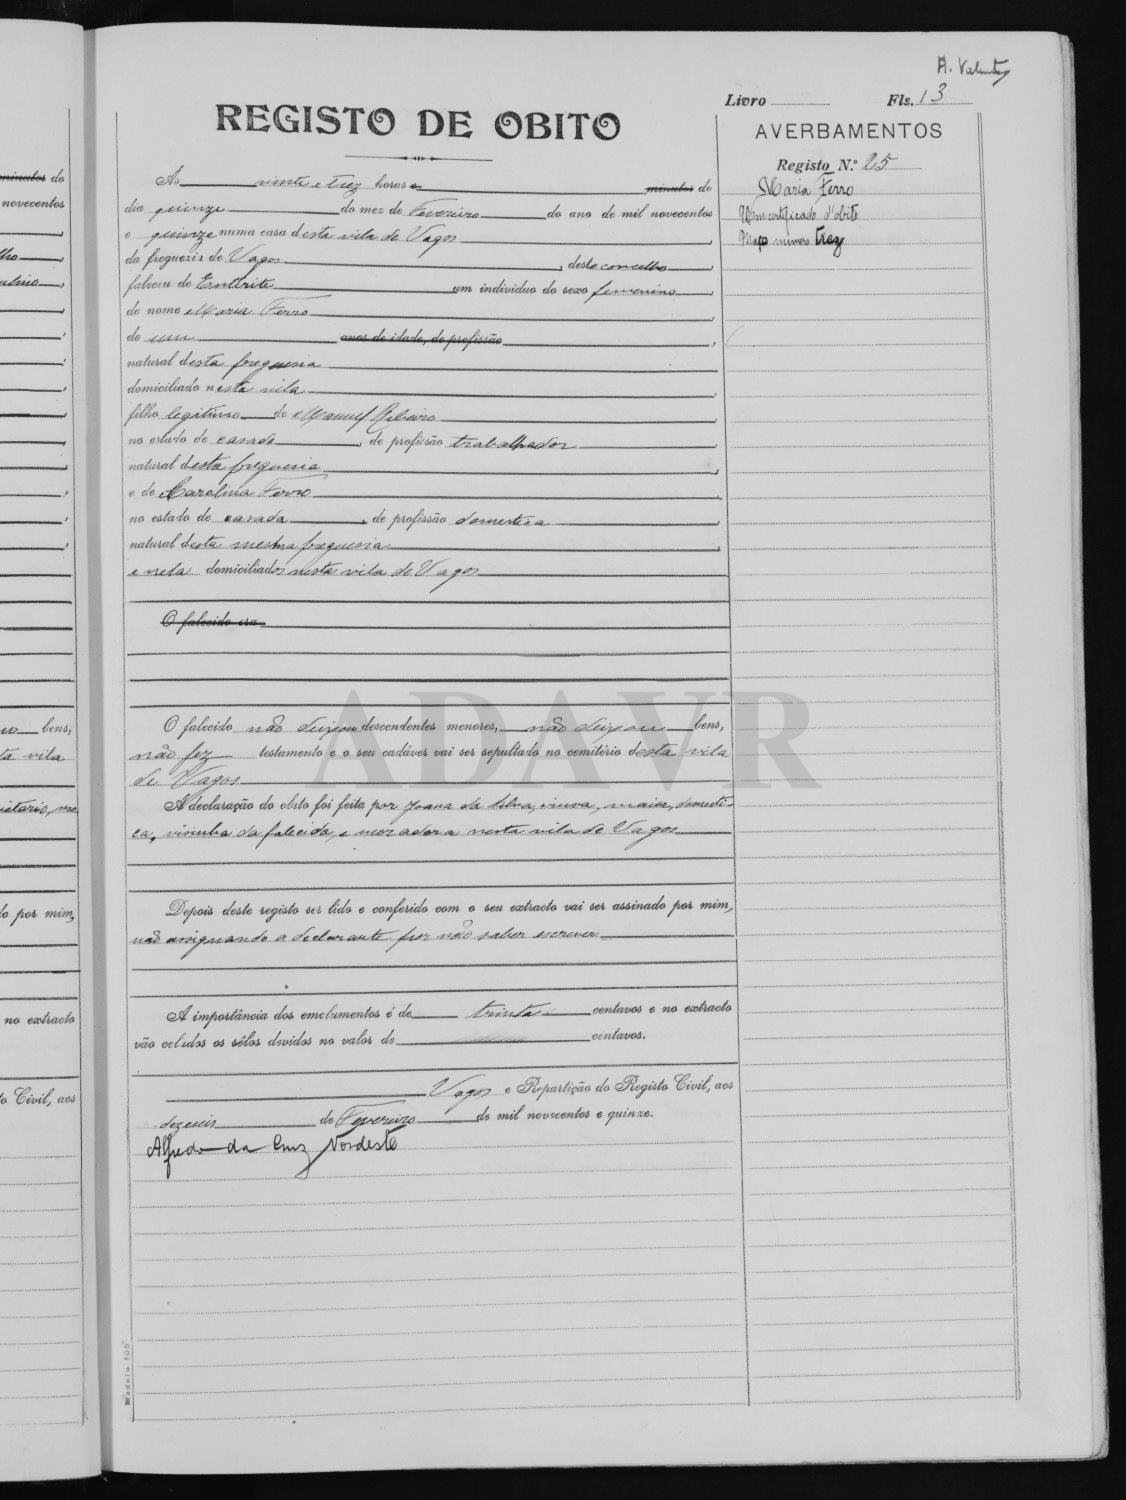 A. Valente
Livro Fls. 13
REGISTO DE OBITO
AVERBAMENTOS
Registo N.º 25
Maria Ferro
Um certificado d'obito
Maço numero trez
minutos do
novecentos
As vinte e trez horas e minutos do
dia quinze do mez de Fevereiro do ano de mil novecentos
e quinze numa casa desta vila de Vagos
da freguezia de Vagos, deste concelho,
faleceu de Enterite um individuo do sexo femenino,
de nome Maria Ferro
de um anos de idade, de profissão
natural desta freguesia
domiciliado nesta vila
filho legitimo de Manuel Ribeiro
no estado de casado, de profissão trabalhador
natural desta freguesia
e de Carolina Ferro
no estado de casada, de profissão domestica
natural desta mesma freguesia
e nela domiciliados nesta vila de Vagos
O falecido era
bens,
ta vila
O falecido não deixou descendentes menores, não deixou bens,
não fez testamento e o seu cadáver vai ser sepultado no cemitério desta vila
de Vagos
ADAVR
A declaração do obito foi feita por Joana da Silva, viuva, maior, domesti-
ca, visinha da falecida, e moradora nesta vila de Vagos
do por mim,
Depois deste registo ser lido e conferido com o seu extracto vai ser assinado por mim,
não assignando a declarante por não saber escrever
no extracto
A importância dos emolumentos é de trinta centavos e no extracto
vão colados os sêlos devidos no valor de centavos.
to Civil, aos
Vagos e Repartição do Registo Civil, aos
dezeseis de Fevereiro de mil novecentos e quinze.
Alfredo da Cruz Nordeste
Modelo 105